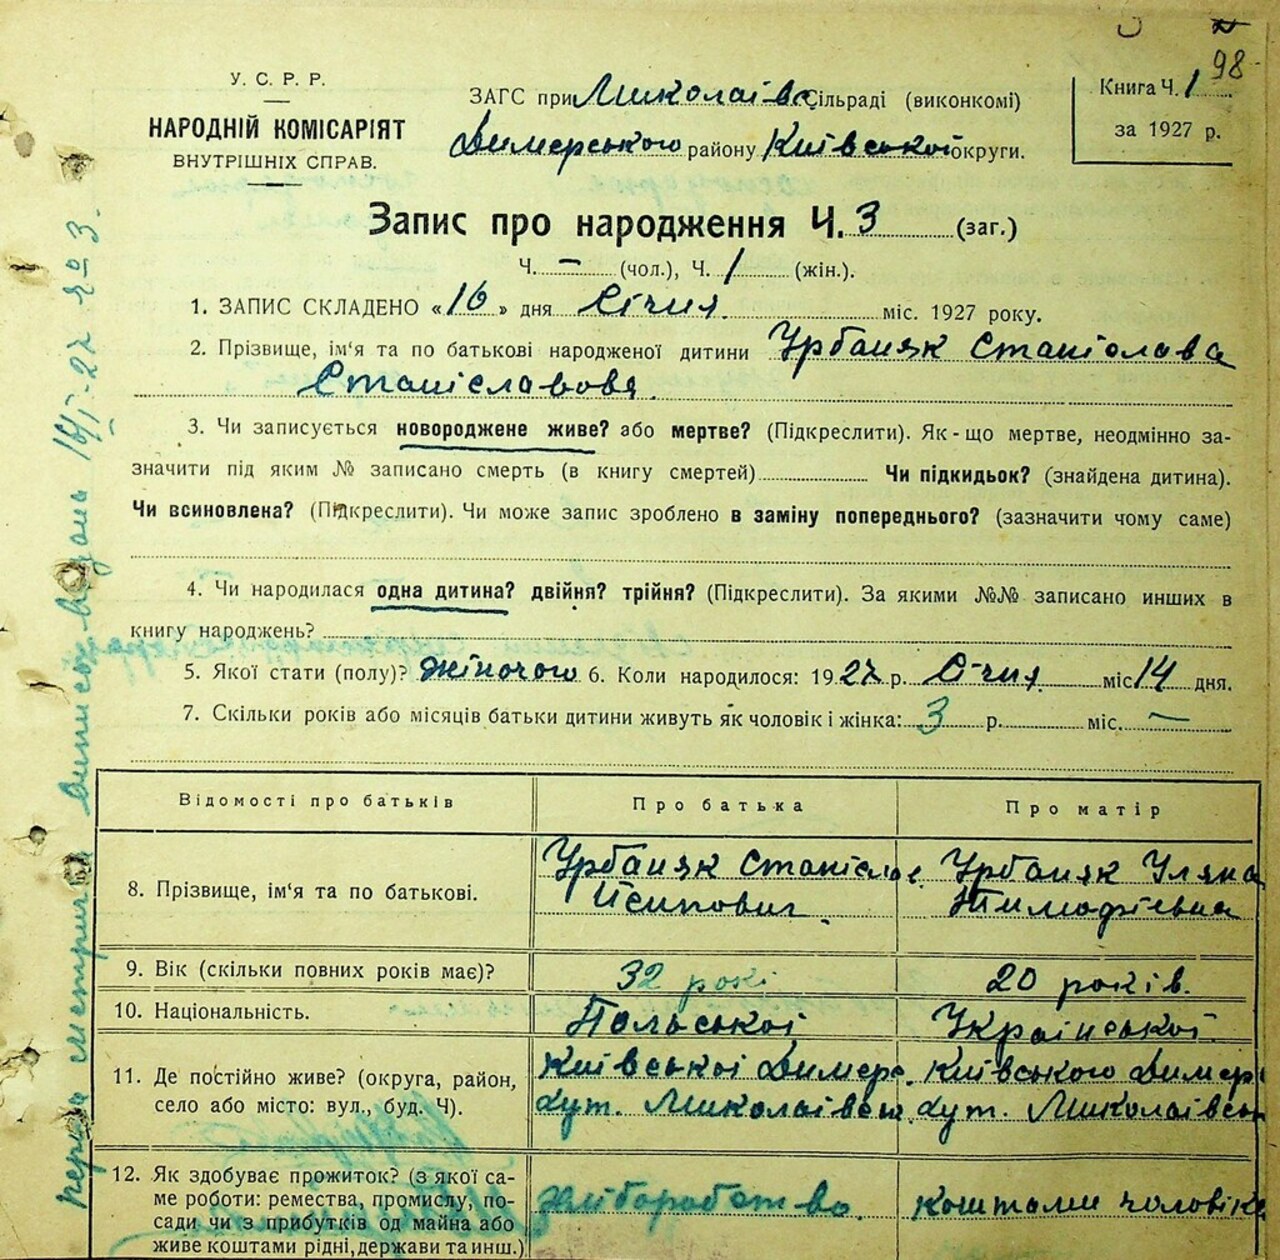 98
У. С. Р. Р.
НАРОДНІЙ КОМІСАРІЯТ
ВНУТРІШНІХ СПРАВ.
ЗАГС при Миколаївс. сільраді (виконкомі)
Димерського району Київської округи.
Книга Ч. 1
за 1927 р.
Запис про народження Ч. 3 (заг.)
Ч. — (чол.), Ч. 1 (жін.).
1. ЗАПИС СКЛАДЕНО «16» дня Січня міс. 1927 року.
2. Прізвище, ім'я та по батькові народженої дитини Урбаняк Станіслава
Станіславовя.
3. Чи записується новороджене живе? або мертве? (Підкреслити). Як-що мертве, неодмінно за-
значити під яким № записано смерть (в книгу смертей) Чи підкидьок? (знайдена дитина).
Чи всиновлена? (Підкреслити). Чи може запис зроблено в заміну попереднього? (зазначити чому саме)
4. Чи народилася одна дитина? двійня? трійня? (Підкреслити). За якими №№ записано инших в
книгу народжень?
5. Якої стати (полу)? жіночого 6. Коли народилося: 1927 р. Січня міс. 14 дня.
7. Скільки років або місяців батьки дитини живуть як чоловік і жінка: 3 р. міс. —
Відомості про батьків Про батька Про матір
8. Прізвище, ім'я та по батькові. Урбаняк Станіслав Урбаняк Уляна
Йсипович. Тимофієвна
9. Вік (скільки повних років має)? 32 рокі 20 років.
10. Національність. Польської Української.
11. Де постійно живе? (округа, район, Київської Димерс. Київського Димер
село або місто: вул., буд. Ч). хут. Миколаївськ хут. Миколаївськ
12. Як здобуває прожиток? (з якої са-
ме роботи: ремества, промислу, по- хліборобство. коштами чоловіка
сади чи з прибутків од майна або
живе коштами рідні, держави та инш.)
виписок видань 16/I-27 р. № 3.